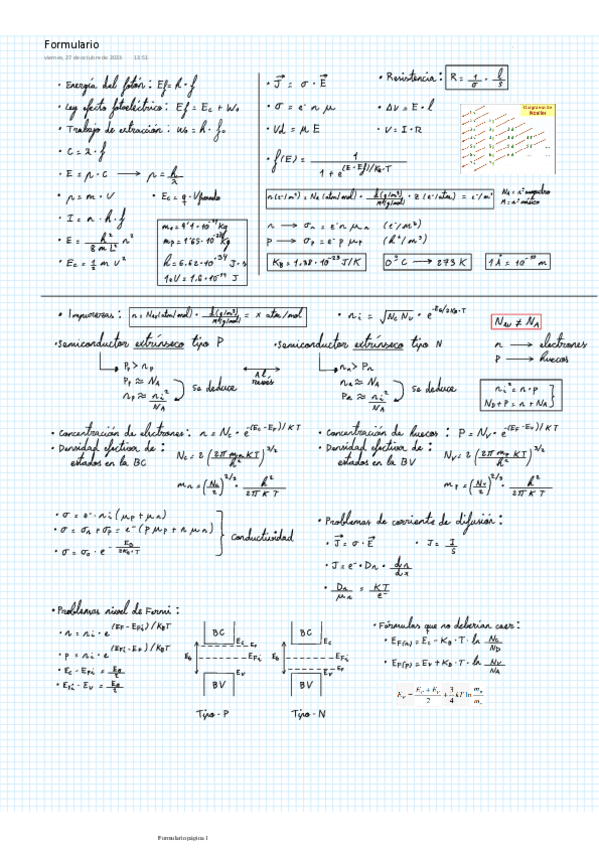 Formulario
viernes, 27 de octubre de 2023 13:51
· Energía del fotón: Ef = h · f
· Ley efecto fotoeléctrico: Ef = Ec + Wo
· Trabajo de extracción: wo = h · fo
· C = λ · f
· E = p · C → p = h/λ
· p = m · V · Ec = q · Vfrenado
· I = n · h · f
· E = h²/8mL² n²
· Ec = 1/2 m v²
me = 9'1 · 10⁻³¹ Kg
mp = 1'65 · 10⁻²⁷ Kg
h = 6.62 · 10⁻³⁴ J · s
1eV = 1.6 · 10⁻¹⁹ J
· J⃗ = σ · E⃗
· σ = e⁻ n μ
· Vd = μ E
· f(E) = 1/(1 + e^((E-Ef)/KB·T))
· Resistencia: R = 1/σ · l/s
· ΔV = E · l
· V = I · R
Diagrama de Moeller
n → σn = e⁻ n μn (e⁻/m³)
p → σp = e⁻ p μp (h⁺/m³)
KB = 1.38 · 10⁻²³ J/K
0°C → 273 K
1Å = 10⁻¹⁰ m
· Impurezas: = x atm/mol
· ni = √(Nc Nv) · e^(-EG/2KB·T)
Nav ≠ NA
· Semiconductor extrínseco tipo P
Pp > np
Pp ≈ NA
np ≈ ni²/NA
se deduce
al revés
· Semiconductor extrínseco tipo N
nn > Pn
nn ≈ NA
Pn ≈ ni²/NA
se deduce
n → electrones
p → huecos
ni² = n · p
ND + P = n + NA
· Concentración de electrones: n = Nc · e^(-(Ec-EF)/KT)
· Densidad efectiva de estados en la BC Nc = 2 (2π mn KT/h²)^3/2
mn = (Nc/2)^2/3 · h²/2πKT
· Concentración de huecos: P = Nv · e^(-(EF-Ev)/KT)
· Densidad efectiva de estados en la BV Nv = 2 (2π mp KT/h²)^3/2
mp = (Nv/2)^2/3 · h²/2πKT
· σ = e⁻ · ni (μp + μn)
· σ = σn + σp = e⁻ (p μp + n μn)
· σ = σo · e^(-EG/2KB·T)
Conductividad
· Problemas de corriente de difusión:
· J⃗ = σ · E⃗ · J = I/S
· J = e⁻ · Dn · dn/dx
· Dn/μn = KT/e⁻
· Problemas nivel de Fermi:
· n = ni · e^((EF-EFi)/KBT)
· p = ni · e^((EFi-EF)/KBT)
· Ec - EFi = EG/2
· EFi - Ev = EG/2
BC Ec EF EG EFi Ev BV
Tipo - P
BC Ec EF EG EFi Ev BV
Tipo - N
· Fórmulas que no deberían caer:
· EF(n) = Ec - KB · T · ln Nc/ND
· EF(p) = Ev + KB · T · ln Nv/NA
Formulario página 1